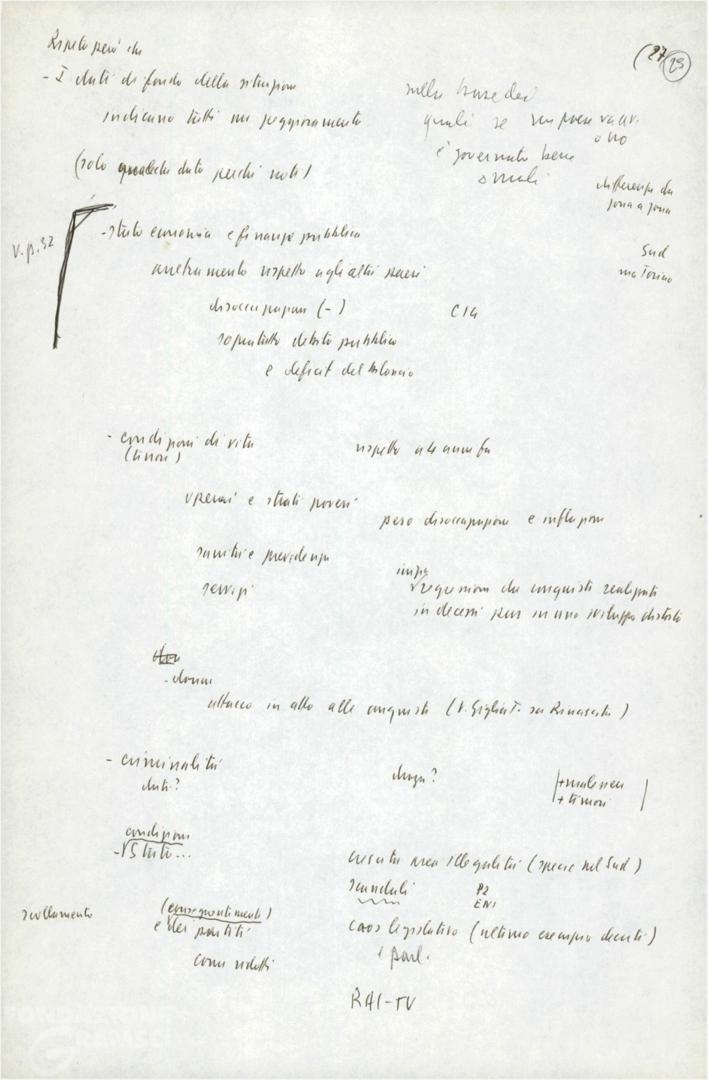 Ripeto però che
(27 25
- I dati di fondo della situazione
indicano tutti un peggioramento
sulla base dei
quali se un paese va av.
o no
è governato bene
o mali
(solo qualche dato perché noti)
differenze da
zona a zona
V. p. 32
- stato economia e finanza pubblica
Sud
ma Torino
arretramento rispetto agli altri paesi
disoccupazione (-)
CIG
soprattutto debito pubblico
e deficit del bilancio
- condizioni di vita
(timori)
rispetto a anni fa
operai e strati poveri
peso disoccupazione e inflazione
sanità e previdenza
servizi
regressione da conquiste realizzate
in decenni pur in uno sviluppo distorto
- donne
attacco in atto alle conquiste (V. Giglia T. su Rinascita)
- criminalità
dati?
droga?
+ timori
condizioni
- Stato...
cresciuta area illegalità (specie nel Sud)
scandali
P2
ENI
scollamento
e dei partiti
caos legislativo (ultimo esempio decreti)
e parl.
come ridotti
RAI-TV
FONDAZIONE
GRAMSCI